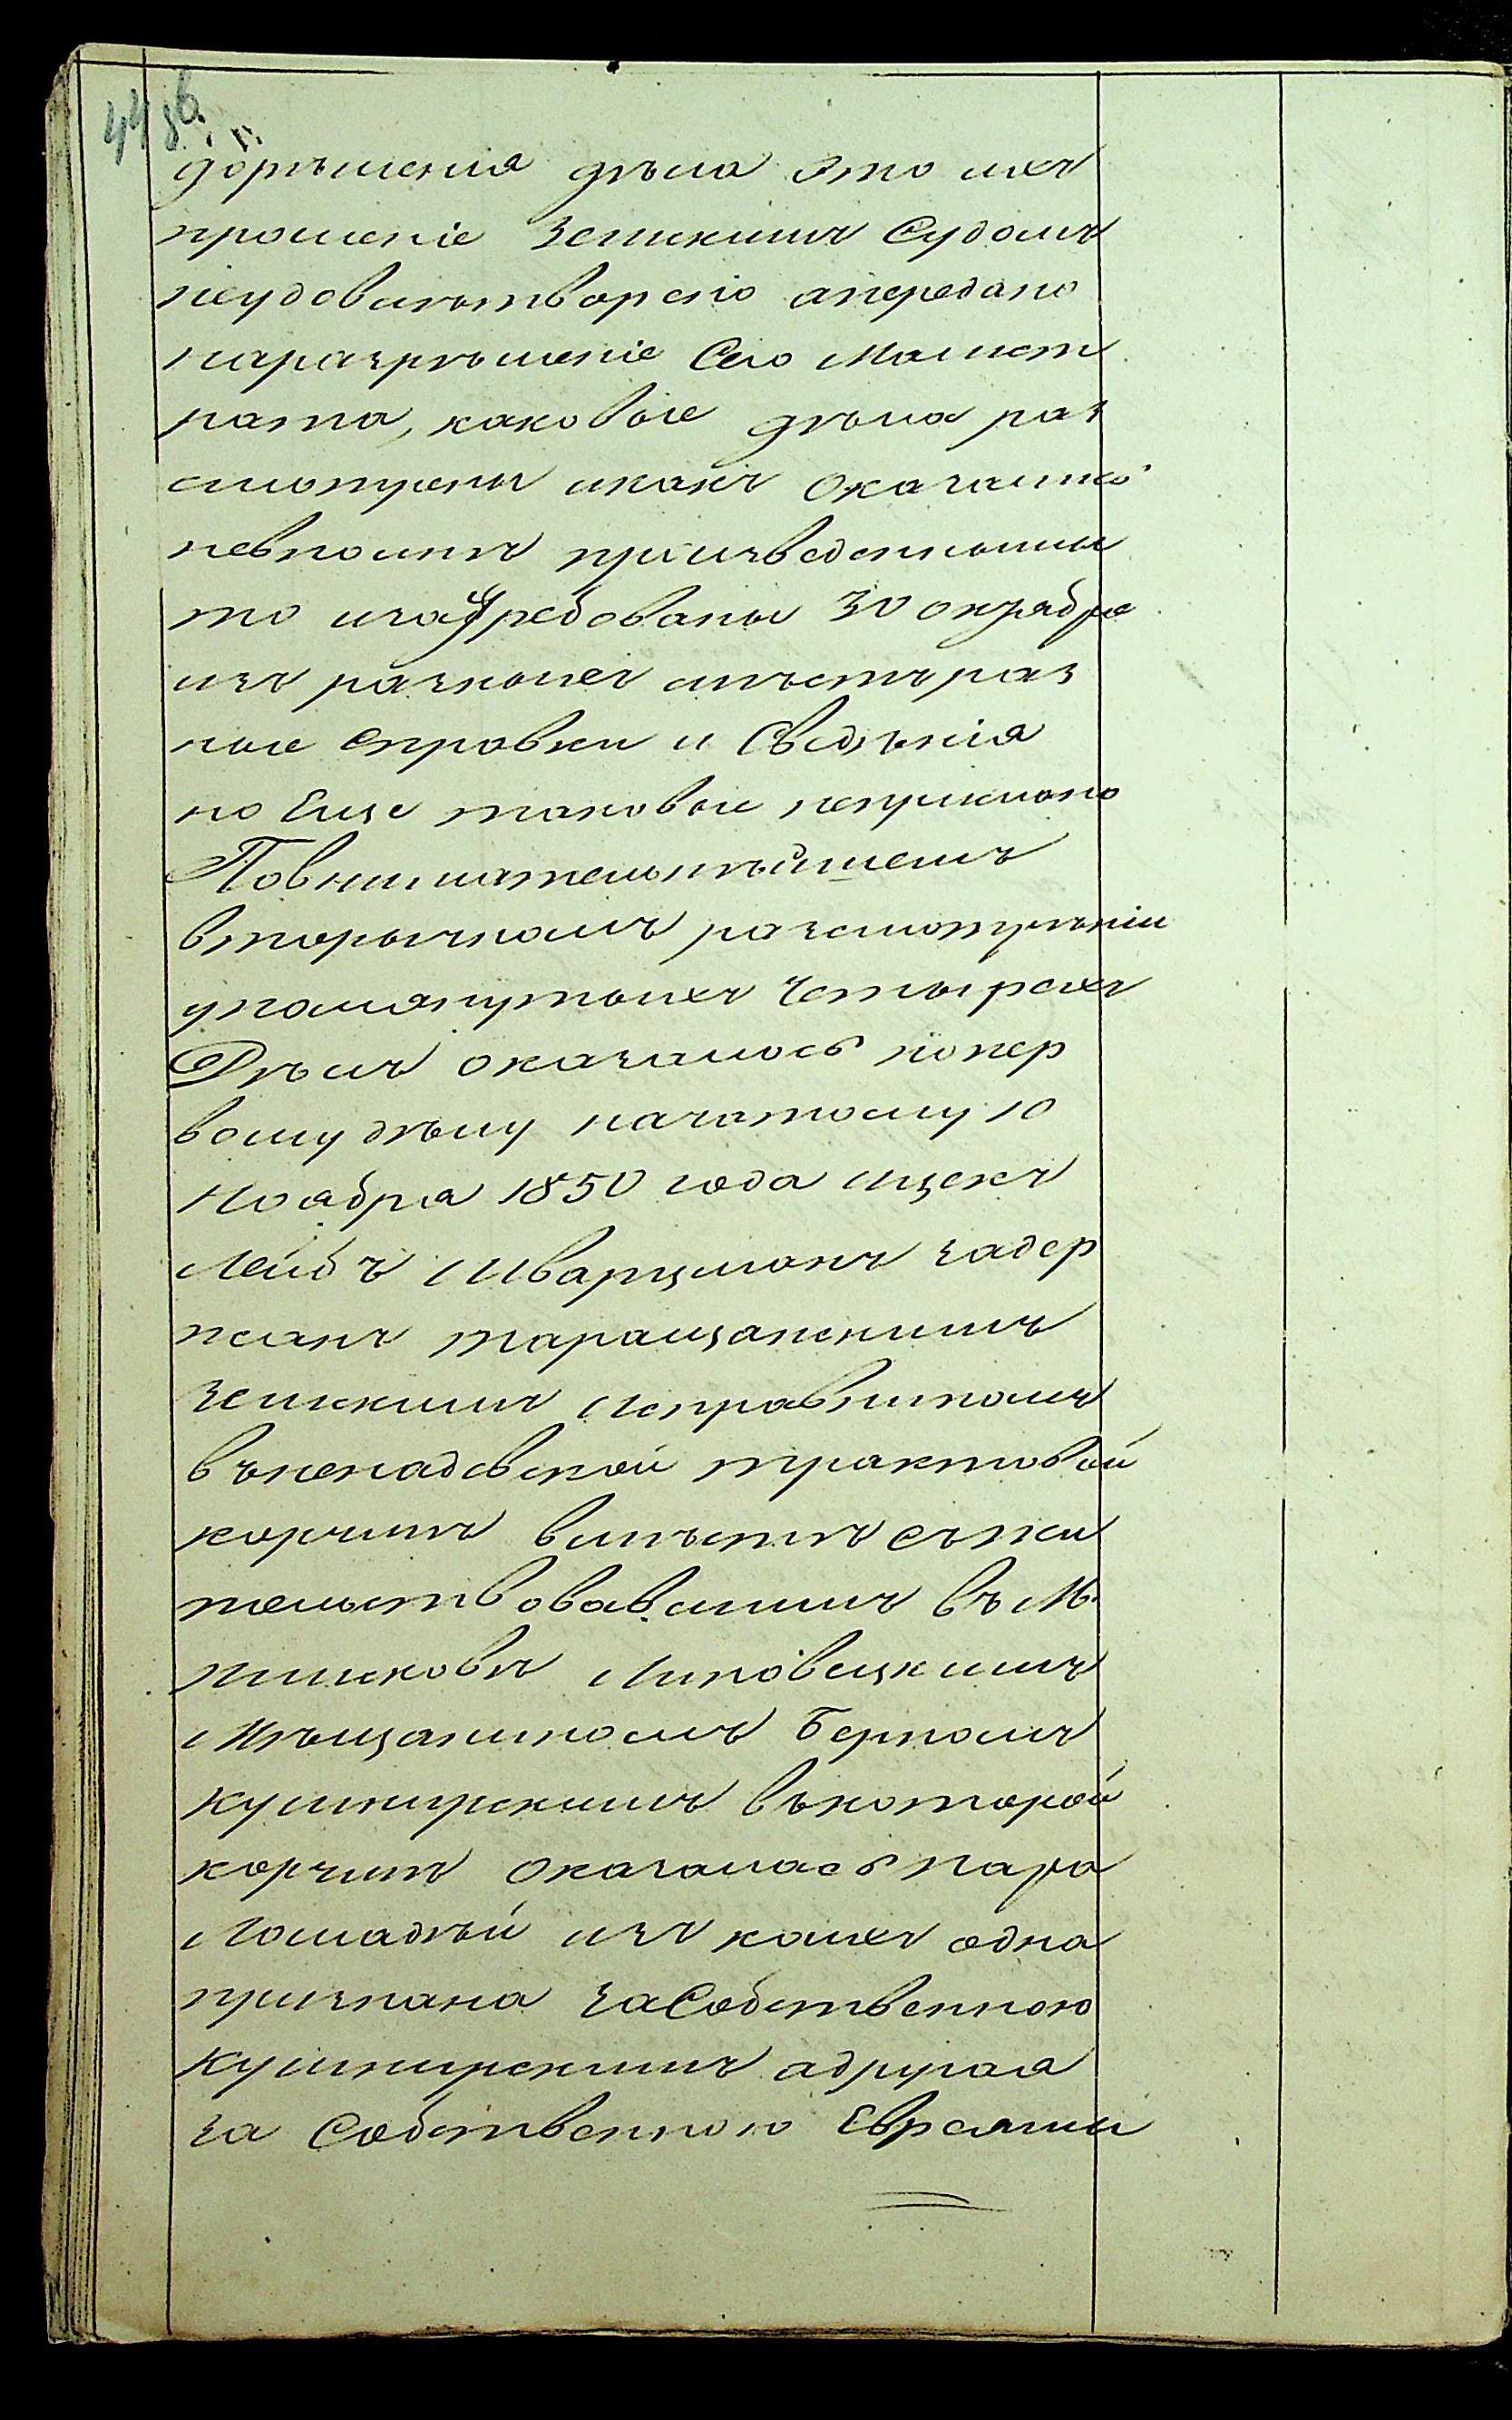 44 об.
дорѣшенія дѣла это ихъ
прошеніе Земскимъ Судомъ
неудовлѣтворено апередано
наразрѣшеніе Сего Магист
рата, каковые дѣла раз
смотрены икакъ оказались
невполнѣ произведенными
то изатребованы 30 октября
изъ разныхъ мѣстъ раз
ные справки и Свѣдѣнія
но Еще таковые неприслано
Повнимательнѣйшемъ
вторичномъ разсмотрѣніи
упомянутыхъ Четырехъ
Дѣлъ оказалось попер
вому дѣлу начатому 10
Ноября 1850 года Ицекъ
Лейбъ Шварцманъ задер
жанъ таращанскимъ
Земскимъ Исправникомъ
въ тракторвой
корчмѣ вмѣстѣ съжи
тельствовавшимъ въ М.
Пшиковѣ Липовецкимъ
Мѣщаниномъ Беркомъ
Кушнирскимъ вькоторой
корчмѣ оказалась пара
Лошадѣй изъ коихъ одна
признана заСобственною
Кушнирскимъ адругая
за Собственною Евреями